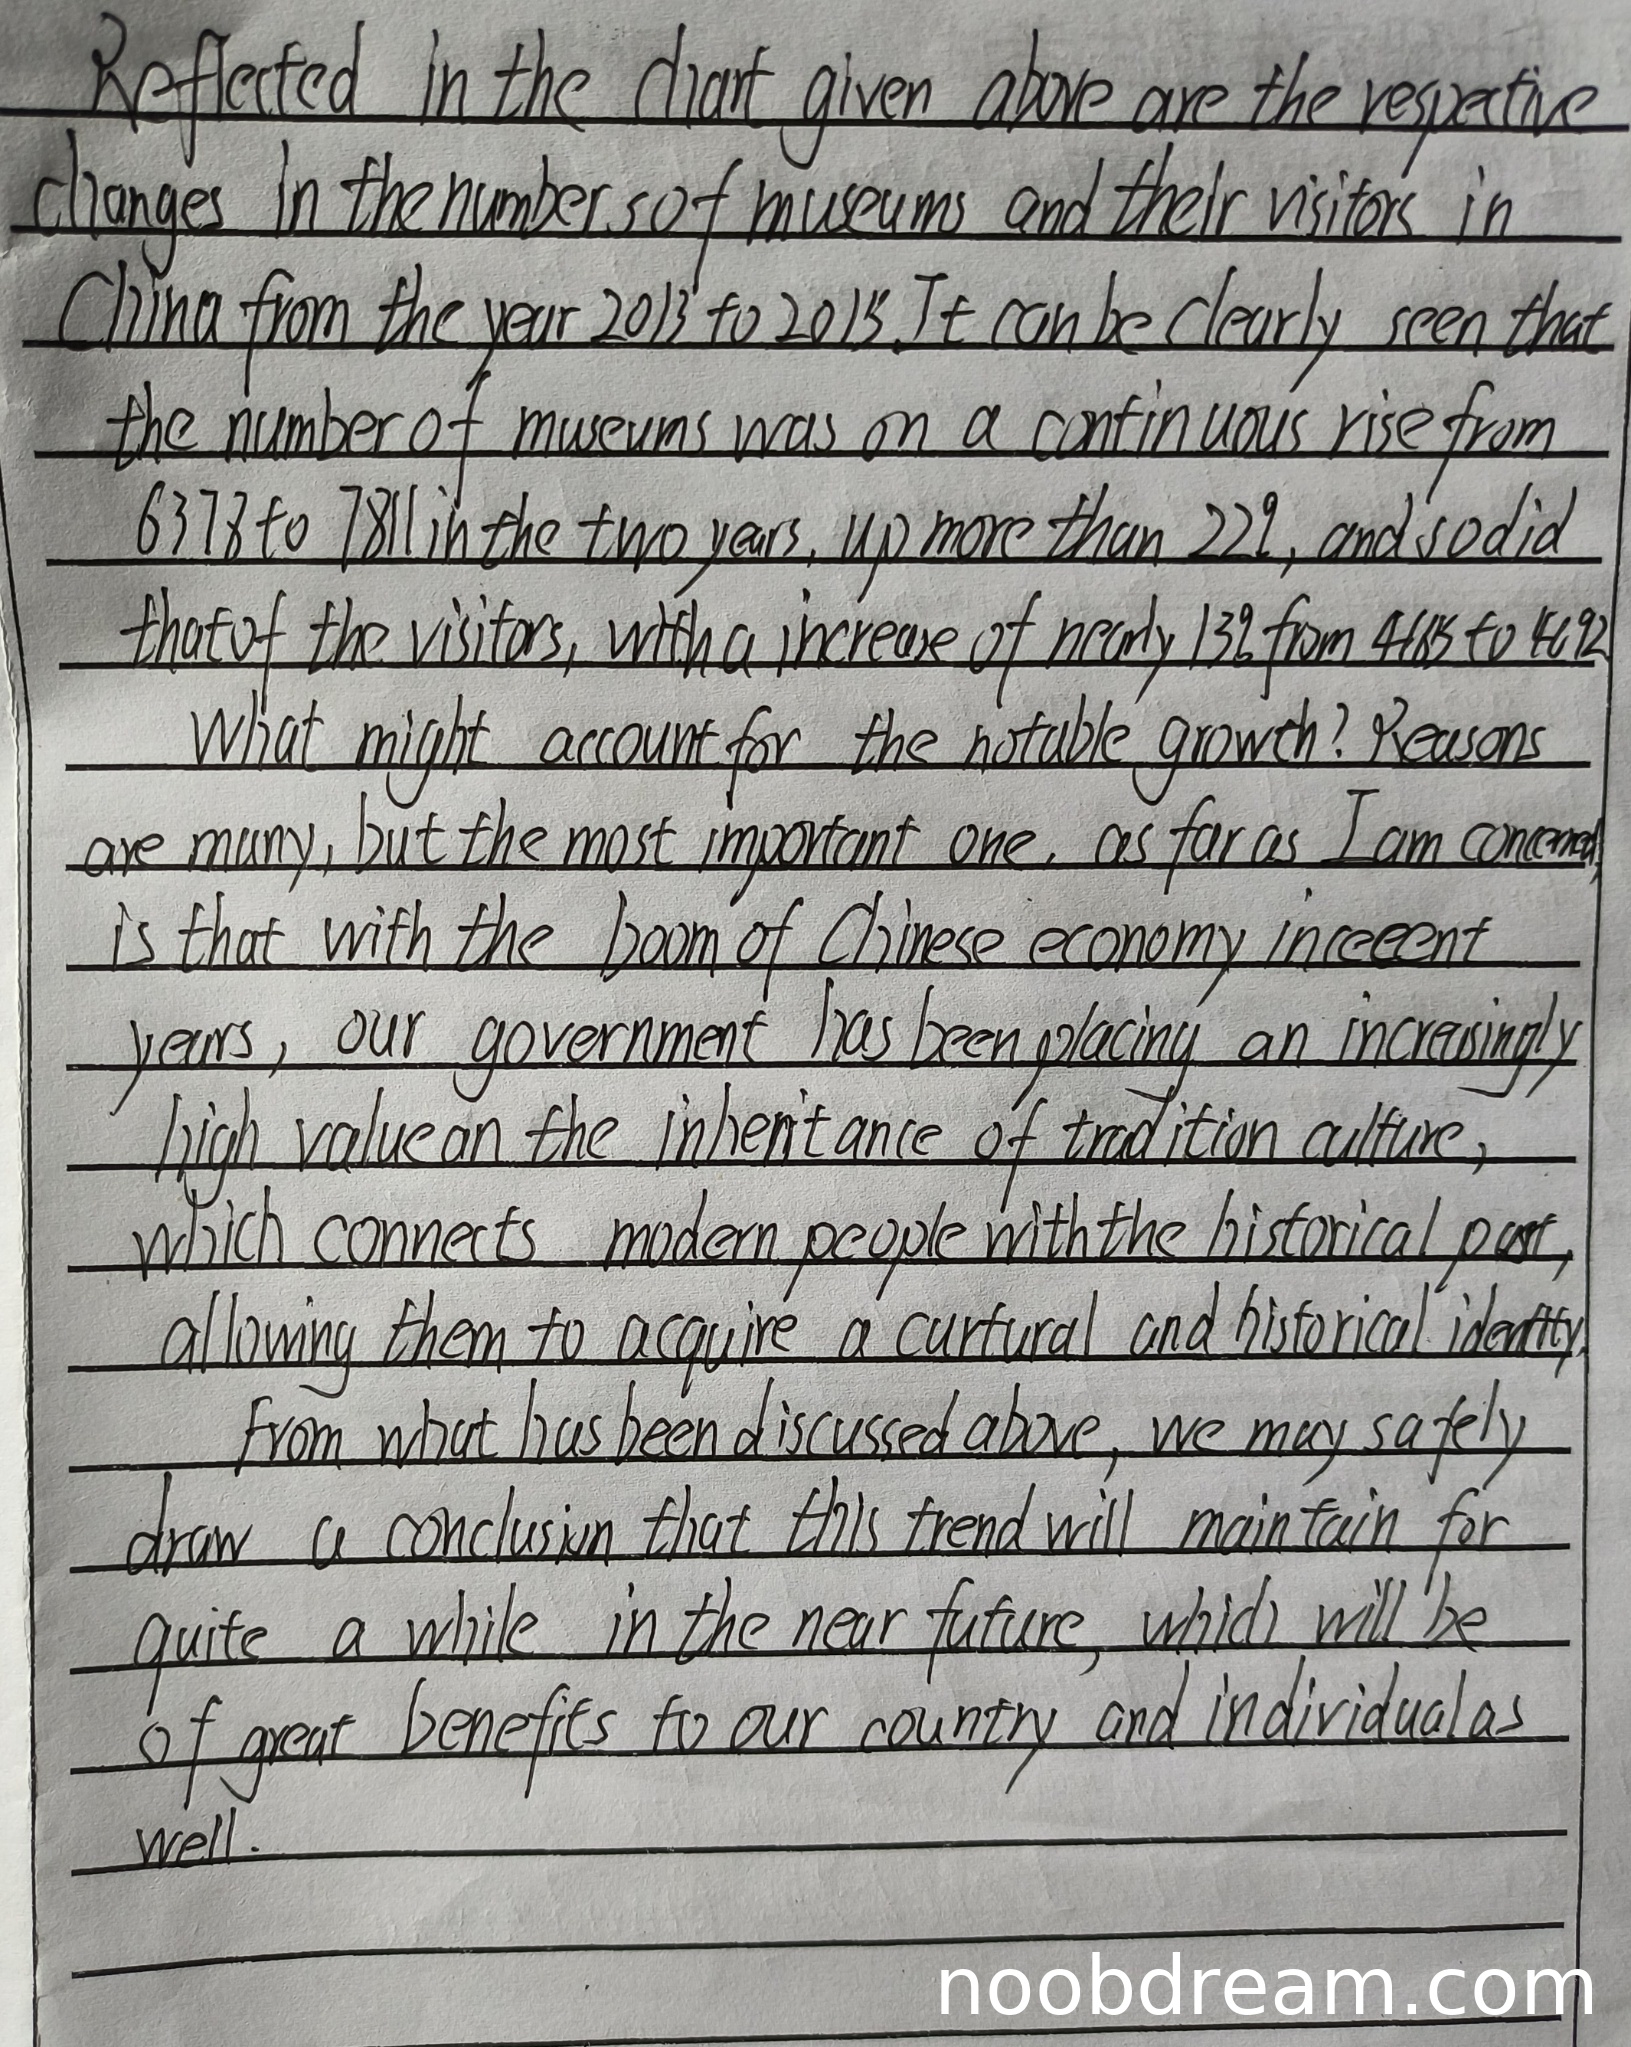 Reflected in the chart given above are the respective
changes in the numbers of museums and their visitors in
China from the year 2013 to 2015. It can be clearly seen that
the number of museums was on a continuous rise from
6378 to 7811 in the two years, up more than 22%, and so did
that of the visitors, with a increase of nearly 13% from to
What might account for the notable growth? Reasons
are many, but the most important one, as far as I am concerned,
is that with the boom of Chinese economy in receent
years, our government has been placing an increasingly
high value an the inheritance of tradition culture,
which connects modern people with the historical past,
allowing them to acquire a curtural and historical identity.
From what has been discussed above, we may safely
draw a conclusion that this trend will maintain for
quite a while in the near future, which will be
of great benefits to our country and individual as
well.
noobdream.com